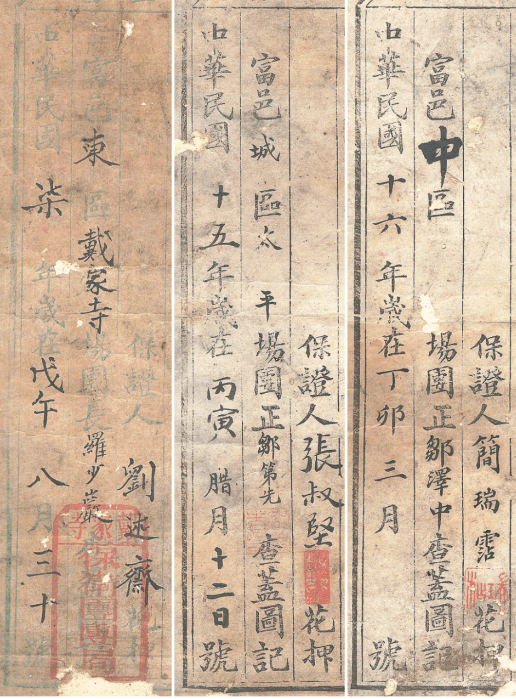 保證人簡瑞霑花押
富邑中區場團正鄒澤中查蓋圖記
中華民國十六年歲在丁卯三月號
保證人張叔堅花押
富邑城區太平場團正鄒第先查蓋圖記
中華民國十五年歲在丙寅腊月十二日號
保證人劉述齋花押
富邑東區戴家寺場團長羅少巖
中華民國柒年歲在戊午八月三十